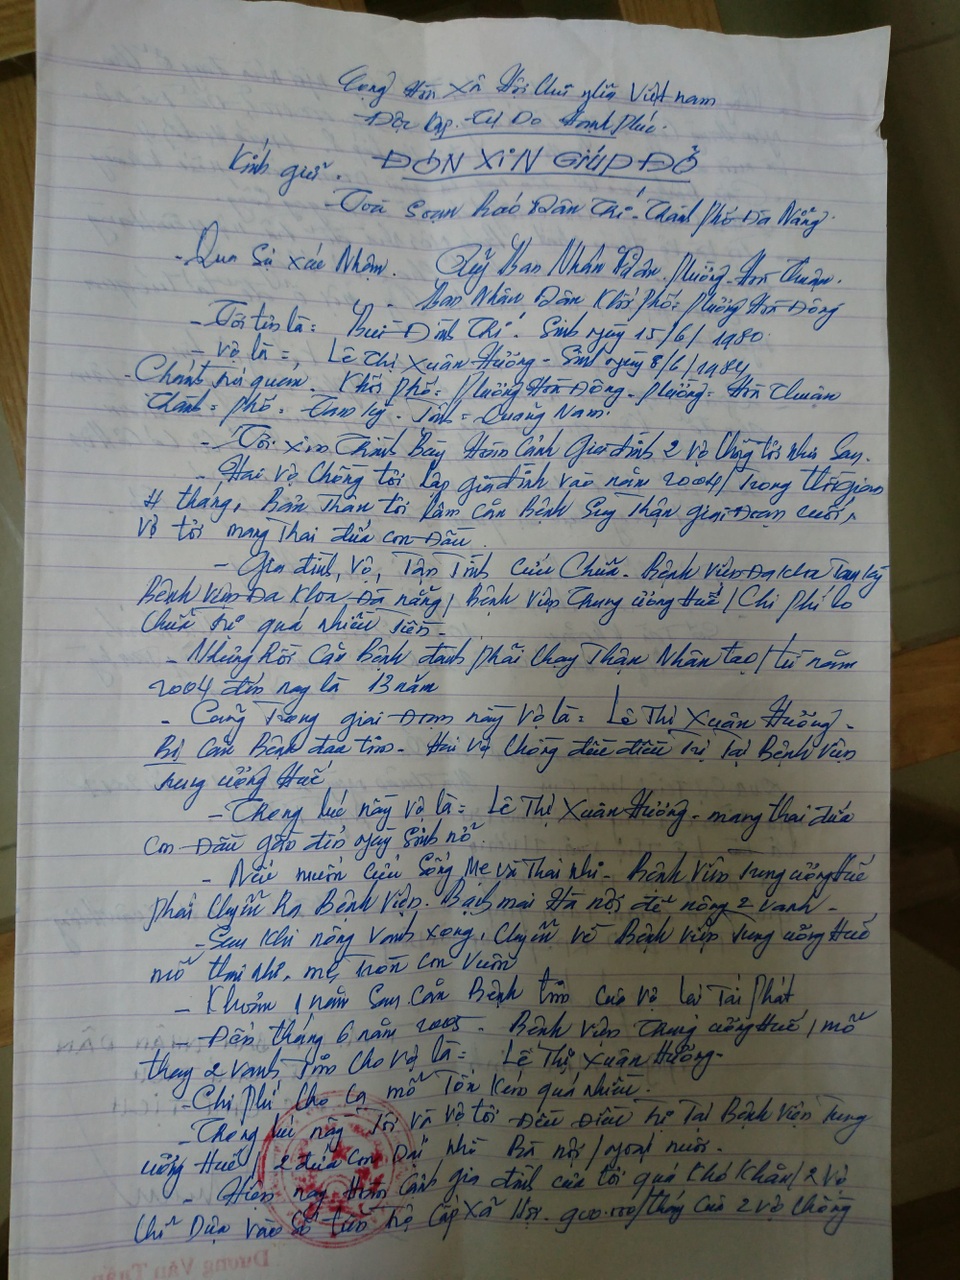 Cộng Hòa Xã Hội Chủ nghĩa Việt nam
Độc lập. Tự Do Hạnh phúc.
Kính gửi. ĐƠN XIN GIÚP ĐỞ
- Toà Soạn Báo Dân Trí - Thành phố Đà Nẵng.
- Qua Sự xác Nhận. Uỷ Ban Nhân Dân. phường - Hòa Thuận.
- Ban Nhân Dân Khối phố: phường Hòa Đông
- Tôi tên là: Bùi - Đình Thi. Sinh ngày 15/6/1980.
- vợ là =, Lê Thị Xuân Hường - Sinh ngày 8/6/1984
- Chánh trú quán. Khối phố: phường Hòa Đông - phường: Hòa Thuận
Thành - phố. Tam kỳ - Tỉnh = Quảng Nam.
- Tôi xin Trình Bày Hoàn Cảnh Gia đình 2 vợ Chồng tôi như Sau.
- Hai vợ Chồng tôi lập gia đình vào năm 2004 / Trong thời gian
4 tháng, Bản Thân tôi lâm căn Bệnh Suy Thận giai đoạn cuối,
vợ tôi mang Thai đứa con Đầu.
- Gia đình, vợ, Tận Tình cứu Chữa - Bệnh viện Đa khoa Tam kỳ
Bệnh viện Đa Khoa Đà nẵng / Bệnh viện Trung ương Huế / Chi phí lo
Chữa trị quá nhiều tiền -
- Nhưng Rồi Căn Bệnh đành phải Chạy Thận Nhân tạo / từ năm
2004 đến nay là 13 năm
- Cũng Trong giai Đoạn này vợ là = Lê Thị Xuân Hường -
Bị Căn Bệnh đau tim - Hai vợ Chồng đều điều Trị Tại Bệnh viện
trung ương Huế
- Trong lúc này vợ là = Lê Thị Xuân Hường - mang thai đứa
Con Đầu gần đến ngày Sinh nở.
- Nếu muốn cứu Sống Mẹ và Thai nhi - Bệnh viện Trung ương Huế
phải Chuyển Ra Bệnh viện. Bạch mai Hà nội để nông 2 vanh -
- Sau Khi nông vanh xong, Chuyển về Bệnh viện Trung ương Huế
mổ thai nhi. mẹ tròn Con vuôn
- Khoản 1 năm Sau Căn Bệnh tim của vợ lại Tái phát
- Đến tháng 6 năm 2005 - Bệnh viện Trung ương Huế / mổ
thay 2 vanh Tim cho vợ là = Lê Thị Xuân Hường -
- Chi phí Cho Ca mổ Tốn Kém quá nhiều.
- Trong lúc này Tôi và vợ tôi Đều Điều trị Tại Bệnh viện Trung
ương Huế, 2 đứa con Dại nhờ Bà nội / ngoại nuôi.
- Hiện nay Hoàn Cảnh gia đình của tôi quá Khó Khăn / 2 vợ
Chỉ Dựa vào Số tiền trợ Cấp Xã Hội. 900.000/tháng Của 2 vợ chồng